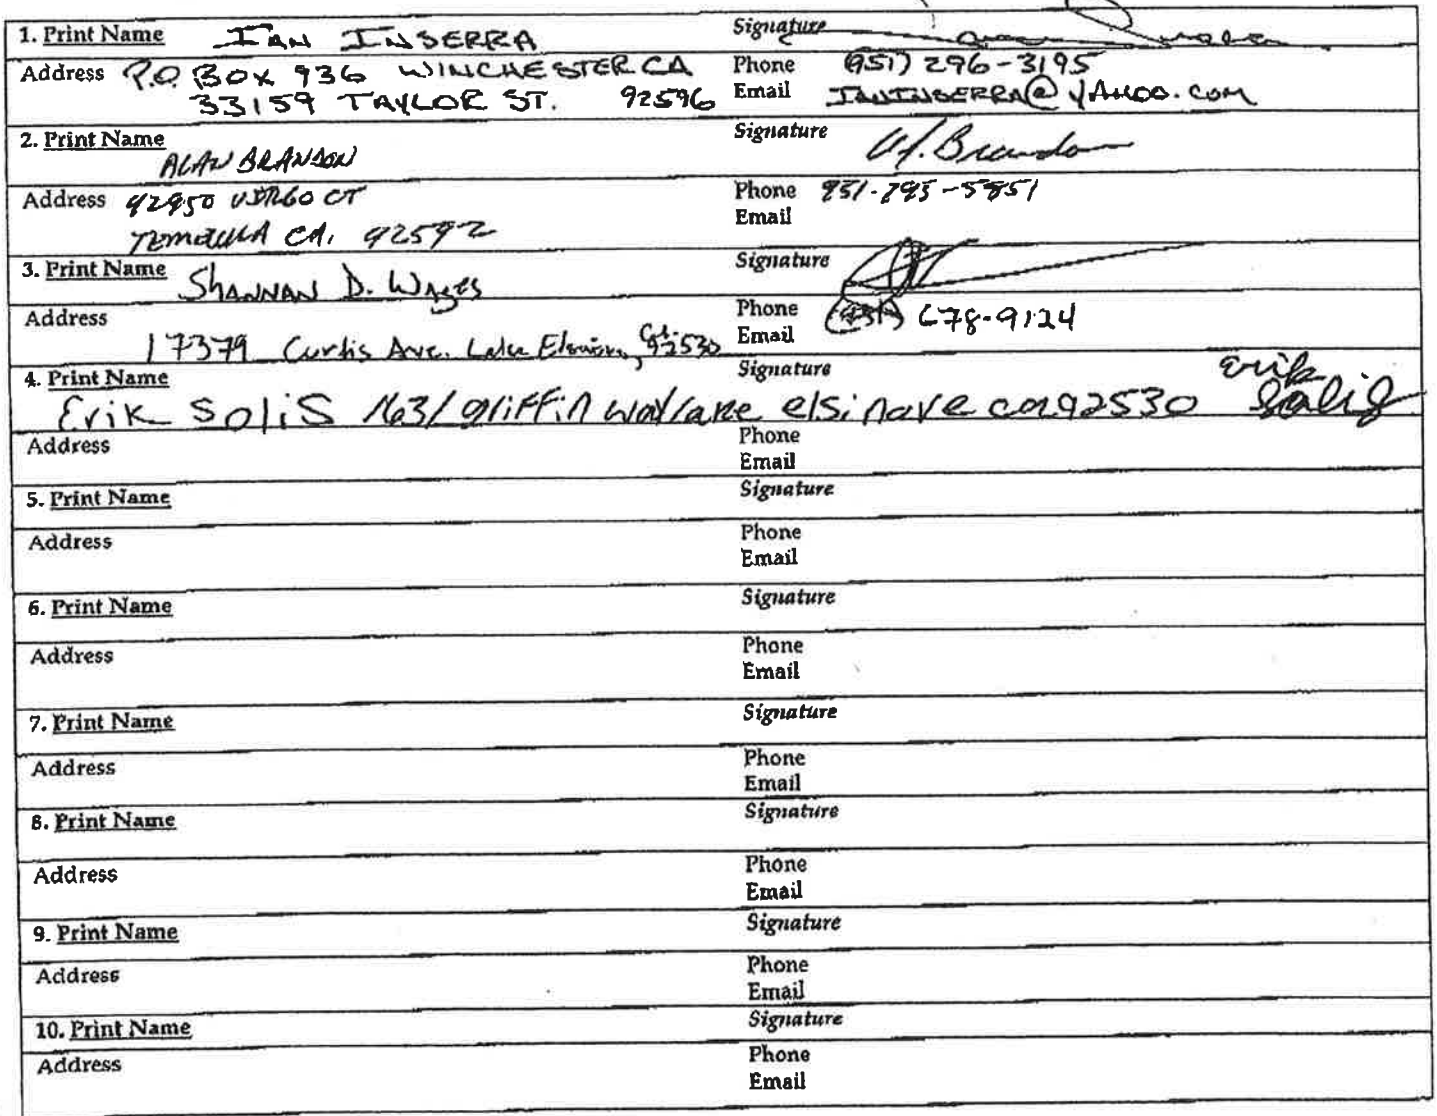 1. Print Name IAN INSERRA Signature
Address P.O. BOX 936 WINCHESTER CA Phone (951) 296-3195
33159 TAYLOR ST. 92596 Email IANINSERRA@YAHOO.COM
2. Print Name ALAN BRANDON Signature A. Brandon
Address 42950 VIRGO CT Phone 951-295-5851
TEMECULA CA. 92592 Email
3. Print Name SHANNAN D. WAGES Signature
Address Phone (951) 678-9124
17379 Curtis Ave. Lake Elsinore, Ca. 92530 Email
4. Print Name Signature Erik
Erik SoliS 163/ griffin way lake elsinore ca 92530 Solis
Address Phone
Email
5. Print Name Signature
Address Phone
Email
6. Print Name Signature
Address Phone
Email
7. Print Name Signature
Address Phone
Email
8. Print Name Signature
Address Phone
Email
9. Print Name Signature
Address Phone
Email
10. Print Name Signature
Address Phone
Email